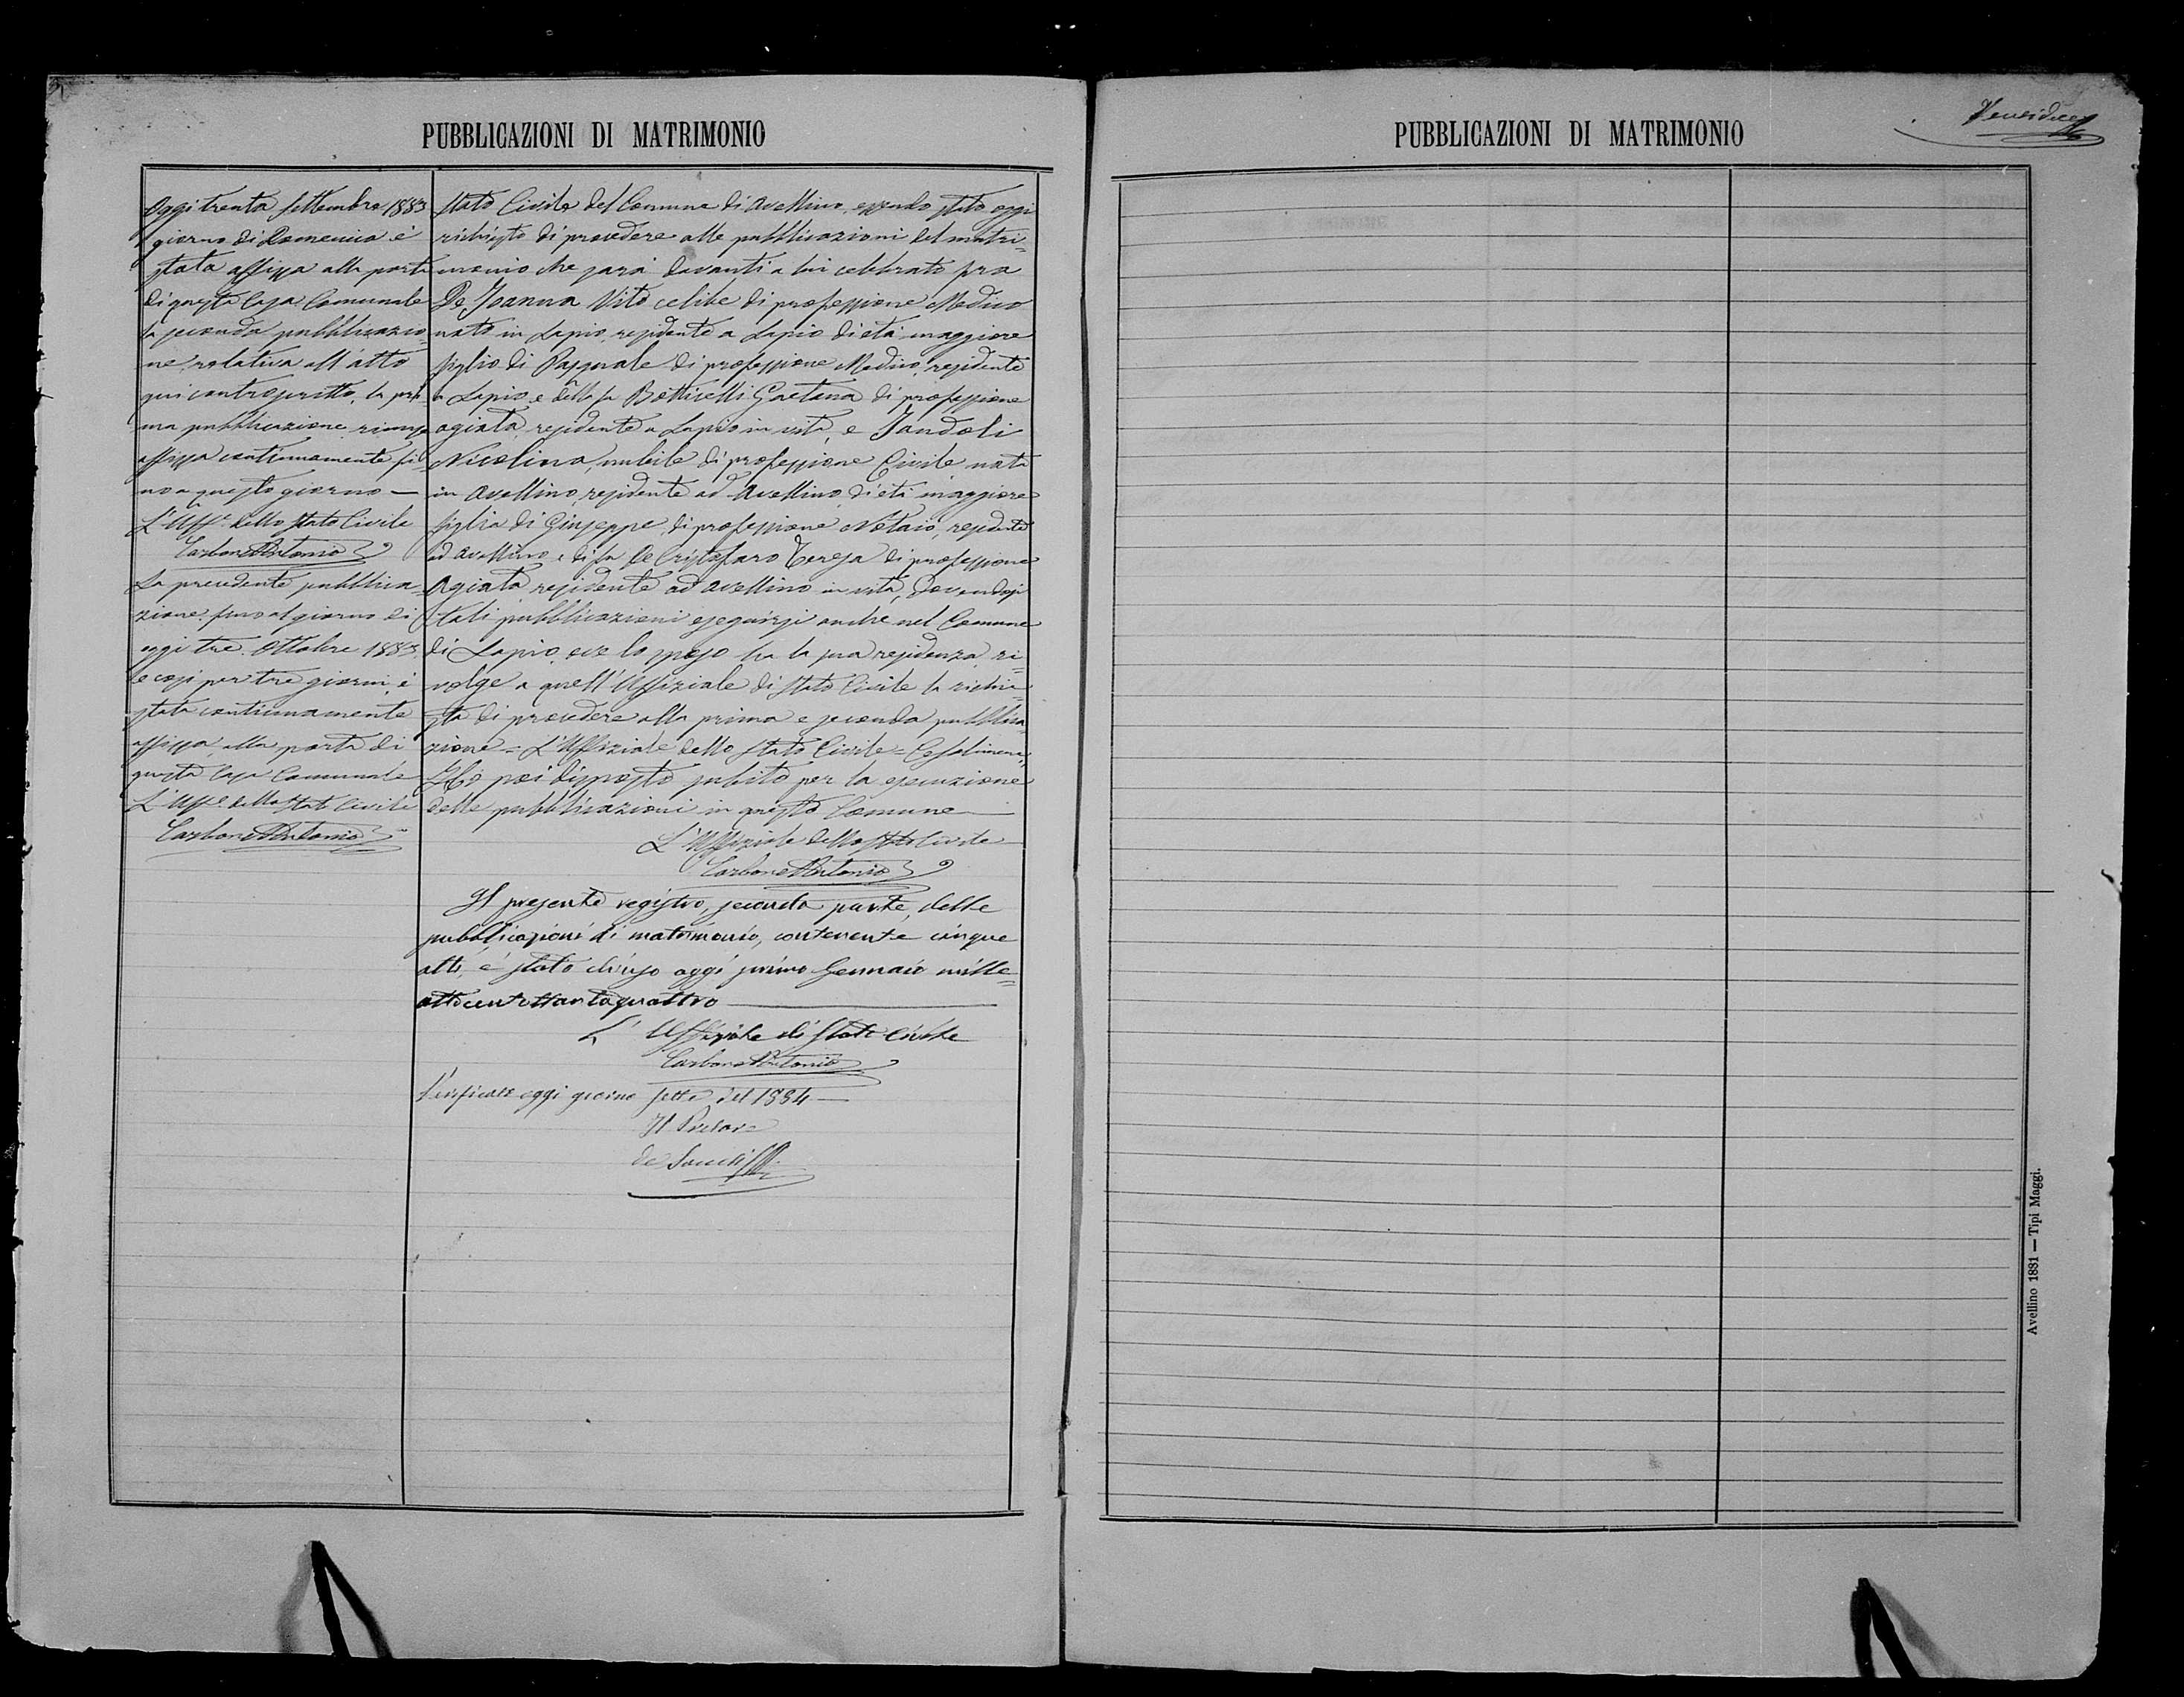 PUBBLICAZIONI DI MATRIMONIO
Oggi trenta Settembre 1883
giorno di Domenica è
stata affissa alla porta
di questa Casa Comunale
la seconda pubblicazio
ne relativa all'atto
qui controscritto, la pri
ma pubblicazione rimase
affissa continuamente fi
no a questo giorno —
L'Uff.e dello Stato Civile
Carbone Antonio
La precedente pubblica
zione fino al giorno di
oggi tre Ottobre 1883
e così per tre giorni, è
stata continuamente
affissa alla porta di
questa Casa Comunale
L'Uff.e dello Stato Civile
Carbone Antonio
Stato Civile del Comune di Avellino, essendo stato oggi
richiesto di procedere alle pubblicazioni del matri=
monio che sarà davanti a lui celebrato fra
De Joanna Vito celibe di professione Medico
nato in Lapio, residente a Lapio di età maggiore
figlio di Pasquale di professione Medico, residente
a Lapio e della fu Botticelli Gaetana di professione
agiata, residente a Lapio in vita, e Jandoli
Nicolina, nubile di professione Civile, nata
in Avellino, residente ad Avellino, di età maggiore
figlia di Giuseppe, di professione Notaio, residente
ad Avellino, e di fu De Cristofaro Teresa di professione
Agiata residente ad Avellino in vita, Dovendosi
tali pubblicazioni eseguirsi anche nel Comune
di Lapio, ove lo sposo ha la sua residenza, ri=
volge a quell'Uffiziale di Stato Civile la richie=
sta di procedere alla prima e seconda pubblica
zione = L'Uffiziale dello Stato Civile =
Ho poi disposto subito per la esecuzione
delle pubblicazioni in questo Comune —
L'Uffiziale dello Stato Civile
Carbone Antonio
Il presente registro, seconda parte, delle
pubblicazioni di matrimonio, contenente cinque
atti, è stato chiuso oggi primo Gennaio mille=
ottocentottantaquattro —
L'Uffiziale di Stato Civile
Carbone Antonio
Verificato oggi giorno sette del 1884 —
Il Pretore
de
PUBBLICAZIONI DI MATRIMONIO
Avellino 1881 — Tipi Maggi.